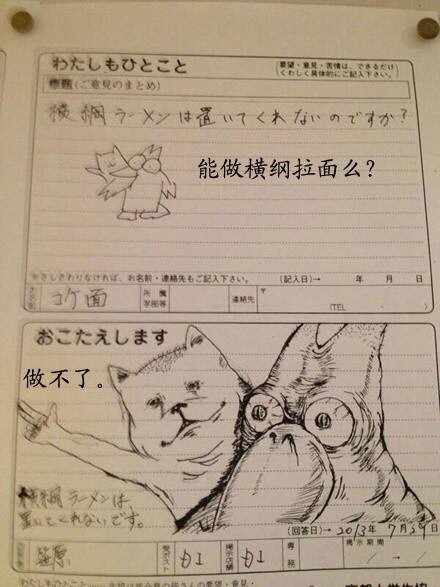 わたしもひとこと
(要望・意見・苦情は、できるだけ
くわしく具体的にご記入下さい。)
標題(ご意見のまとめ)
横綱ラーメンは置いてくれないのですか?
能做横纲拉面么?
※さしさわりなければ、お名前・連絡先もご記入下さい。 (記入日)→ 年 月 日
コケ面
所属
学部等
連絡先
〒
(TEL )
おこたえします
做不了。
横綱ラーメンは
置いてくれないです。
(回答日)→ 2013年 7月3日
掲示
店舗
専務
掲示期間
わたしもひとこと